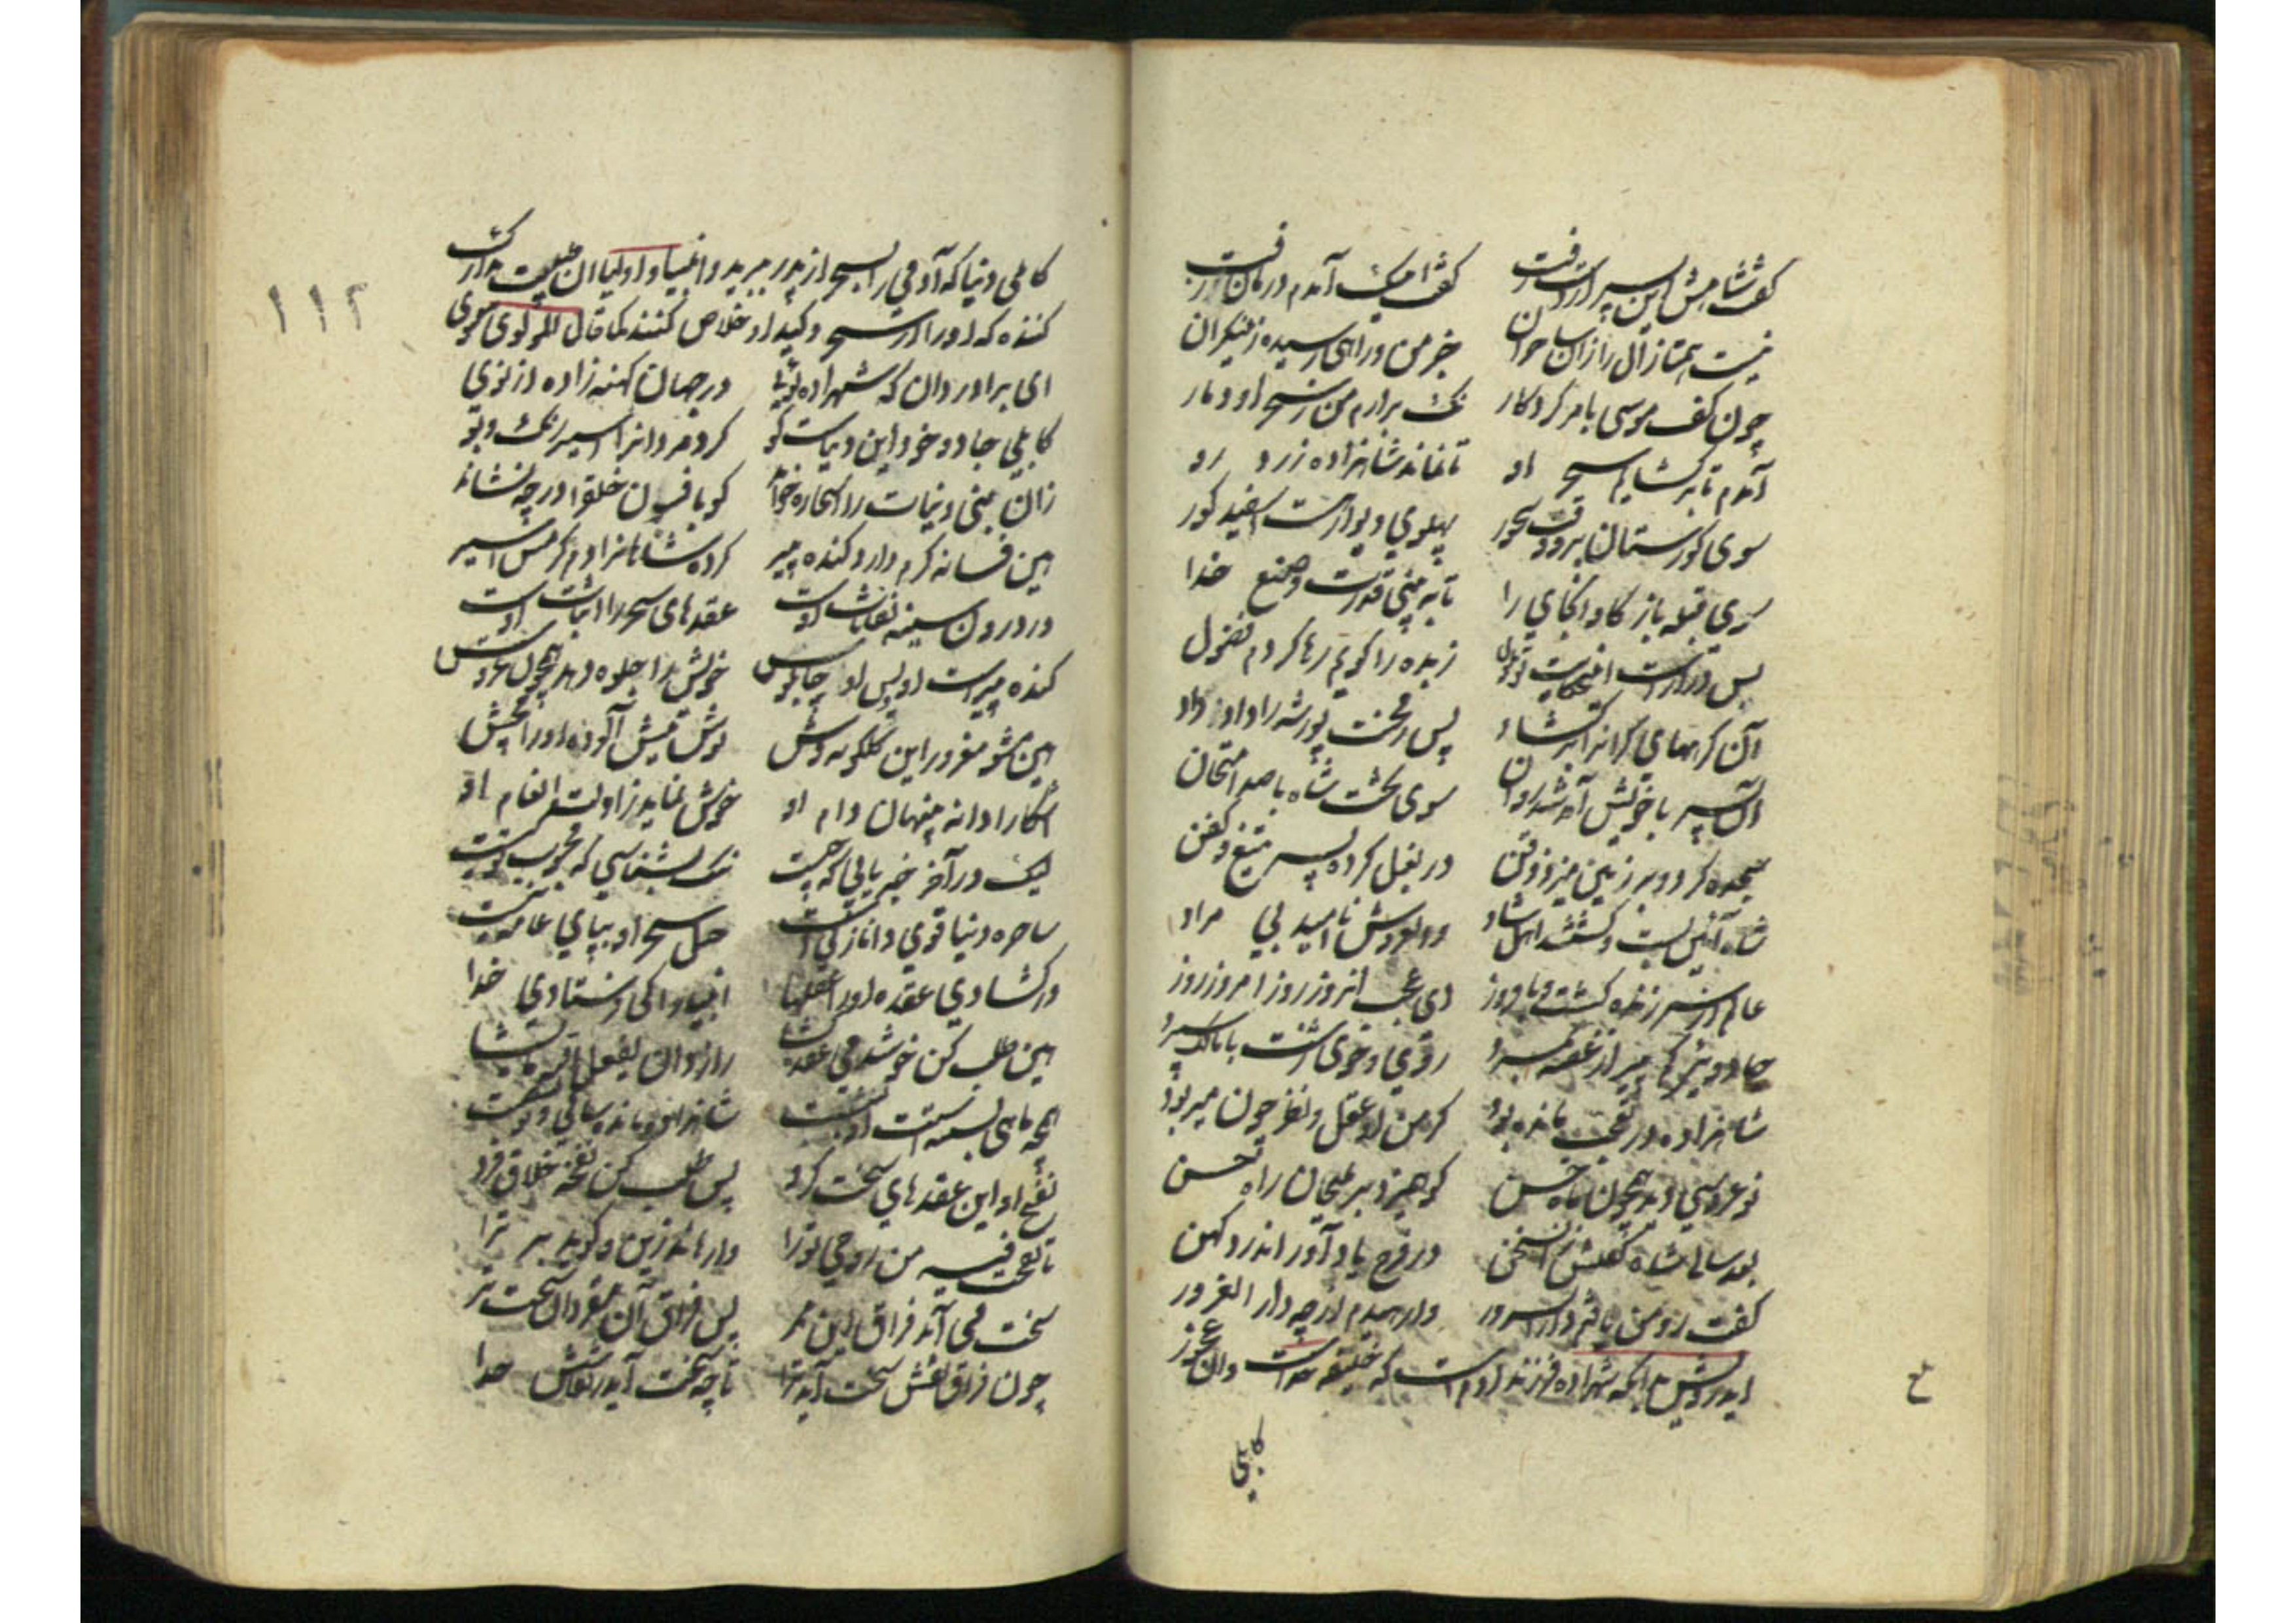 گفت شاهش این پسر از دست رفت گفت اینک آمدم درمان زفت
نیست همتا زال را زان ساحران جز من داهی رسیده زان کران
چون کف موسی بامر کردکار نک برآرم من ز سحر او دمار
آمدم تا بر کشایم سحر او تا نماند شاهزاده زرد رو
سوی کورستان برو وقت سحور پهلوی دیوار هست اسپید کور
سوی قبله باز کاو انجای را تا به بینی قدرت و صنع خدا
بس درازست این حکایت تو ملول زبده را کویم رها کردم فضول
آن کرههای کران را بر کشاد پس ز محنت پور شه را داد داد
آن پسر با خویش آمد شد دوان سوی تخت شاه با صد امتحان
سجده کرد و بر زمین میزد ذقن در بغل کرده پسر تیغ و کفن
شاه آئین بست و کشتند اهل شاد وان عروس نامید بی مراد
عالم از سر زنده کشت و با فروز ای عجب انروز روز امروز روز
جادو کمپیر از غصه بمرد روی و خوی زشت با مالک سپرد
شاهزاده در تعجب مانده بود کز من او عقل و نظر چون میربود
نو عروسی دید همچون ماه حسن کو همیزد بر ملیحان راه حسن
بعد سالی شاه کفتش در سخن
در مزح یاد آور اندر کهن
کفت رو من یافتم دار السرور وارهیدم از چه دار الغرور
در بیان انکه شهزاده فرزند آدم است که خلیفه خداست وان عجوز
کابلی
۱۱۲
کابلی دنیا که آدمی را بسحر از پدر ببرید و انبیا و اولیا ان طبیب تدارک
کننده که او را از سحر و کید او خلاص کنند کما قال المولوی معنوی
ای برادر دان که شهزاده توئی در جهان کهنه زاده از نوی
کابلی جادو خود این دنیاست کو کرد مردانرا اسیر رنک و بو
زان نبی دنیات را سحاره خواند کو بافسون خلق را در چه نشاند
هین فسانه کرم دارد کنده پیر کرده شاهانرا دم کرمش اسیر
در درون سینه نفاثات اوست عقدهای سحر را اثبات اوست
کنده پیرست او و بس او چاپلوس خویش را جلوه دهد همچون عروس
هین مشو مغرور این کلکونه وش نوش نیش آلوده او را مچش
آشکارا دانه پنهان دام او خوش نماید ز اولت انعام او
ساحره دنیا قوی دانا زنی است حل سحر او بپای عامه نیست
ور کشادی عقد او را عقلها انبیا را کی فرستادی خدا
هین طلب کن خوش دمی عقده کشا راز دان یفعل الله ما یشا
همچو ماهی بسته است او بشست شاهزاده ماند سالی و تو شصت
نفخ او این عقدهای سخت کرد پس طلب کن نفخه خلاق فرد
تا نفخت فیه من روحی ترا وارهاند زین و کوید برتر آ
سخت می آید فراق این ممر پس فراق آن مقر دان سخت تر
چون فراق نقش سخت آید ترا تا چه سخت آید ز نقاشش جدا